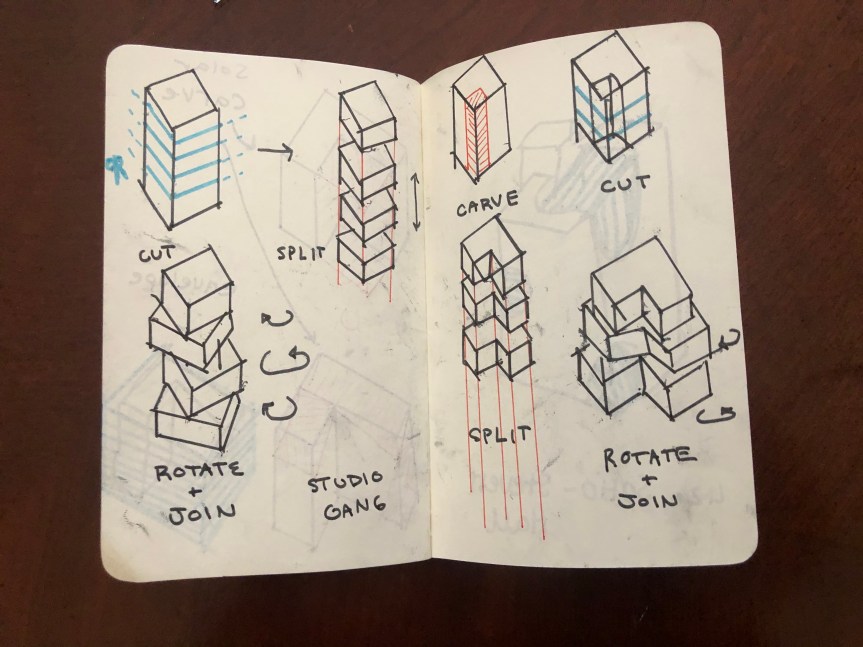 CUT
SPLIT
ROTATE
+
JOIN
STUDIO
GANG
CARVE
CUT
SPLIT
ROTATE
+
JOIN